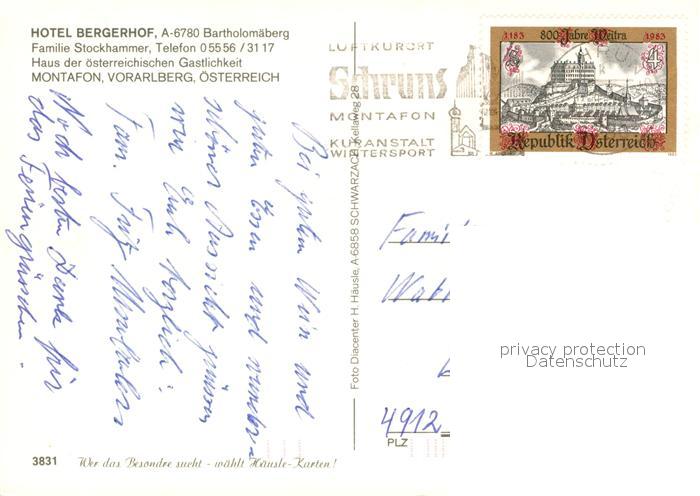 HOTEL BERGERHOF, A-6780 Bartholomäberg
Familie Stockhammer, Telefon 0 55 56 / 31 17
Haus der österreichischen Gastlichkeit
MONTAFON, VORARLBERG, ÖSTERREICH
LUFTKURORT
Schruns
MONTAFON
KURANSTALT
WINTERSPORT
1183 800 Jahre Weitra 1983
4
Republik Österreich
Bei gutem Wein und
gutem Essen und wunder-
schöner Aussicht grüssen
wir Euch herzlich!
Fam. Fritz
Noch besten Dank für
das Feriengrüsschen.
Foto Diacenter H. Häusle, A-6858 SCHWARZACH, Kellaweg 28
Fami
4912
PLZ
privacy protection
Datenschutz
3831
Wer das Besondre sucht - wählt Häusle-Karten!